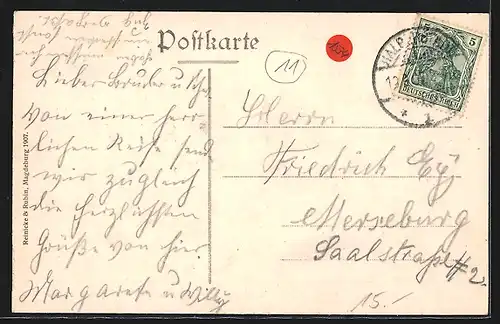 Postkarte
11
Lieber Bruder u
von einer herr-
lichen Reise send
wir zugleich
die herzlichsten
Grüße von hier
Margarete u Willy
Reinicke & Rubin, Magdeburg 1907.
5
DEUTSCHES REICH
Herrn
Friedrich
Merseburg
Saalstraße #2
15.-